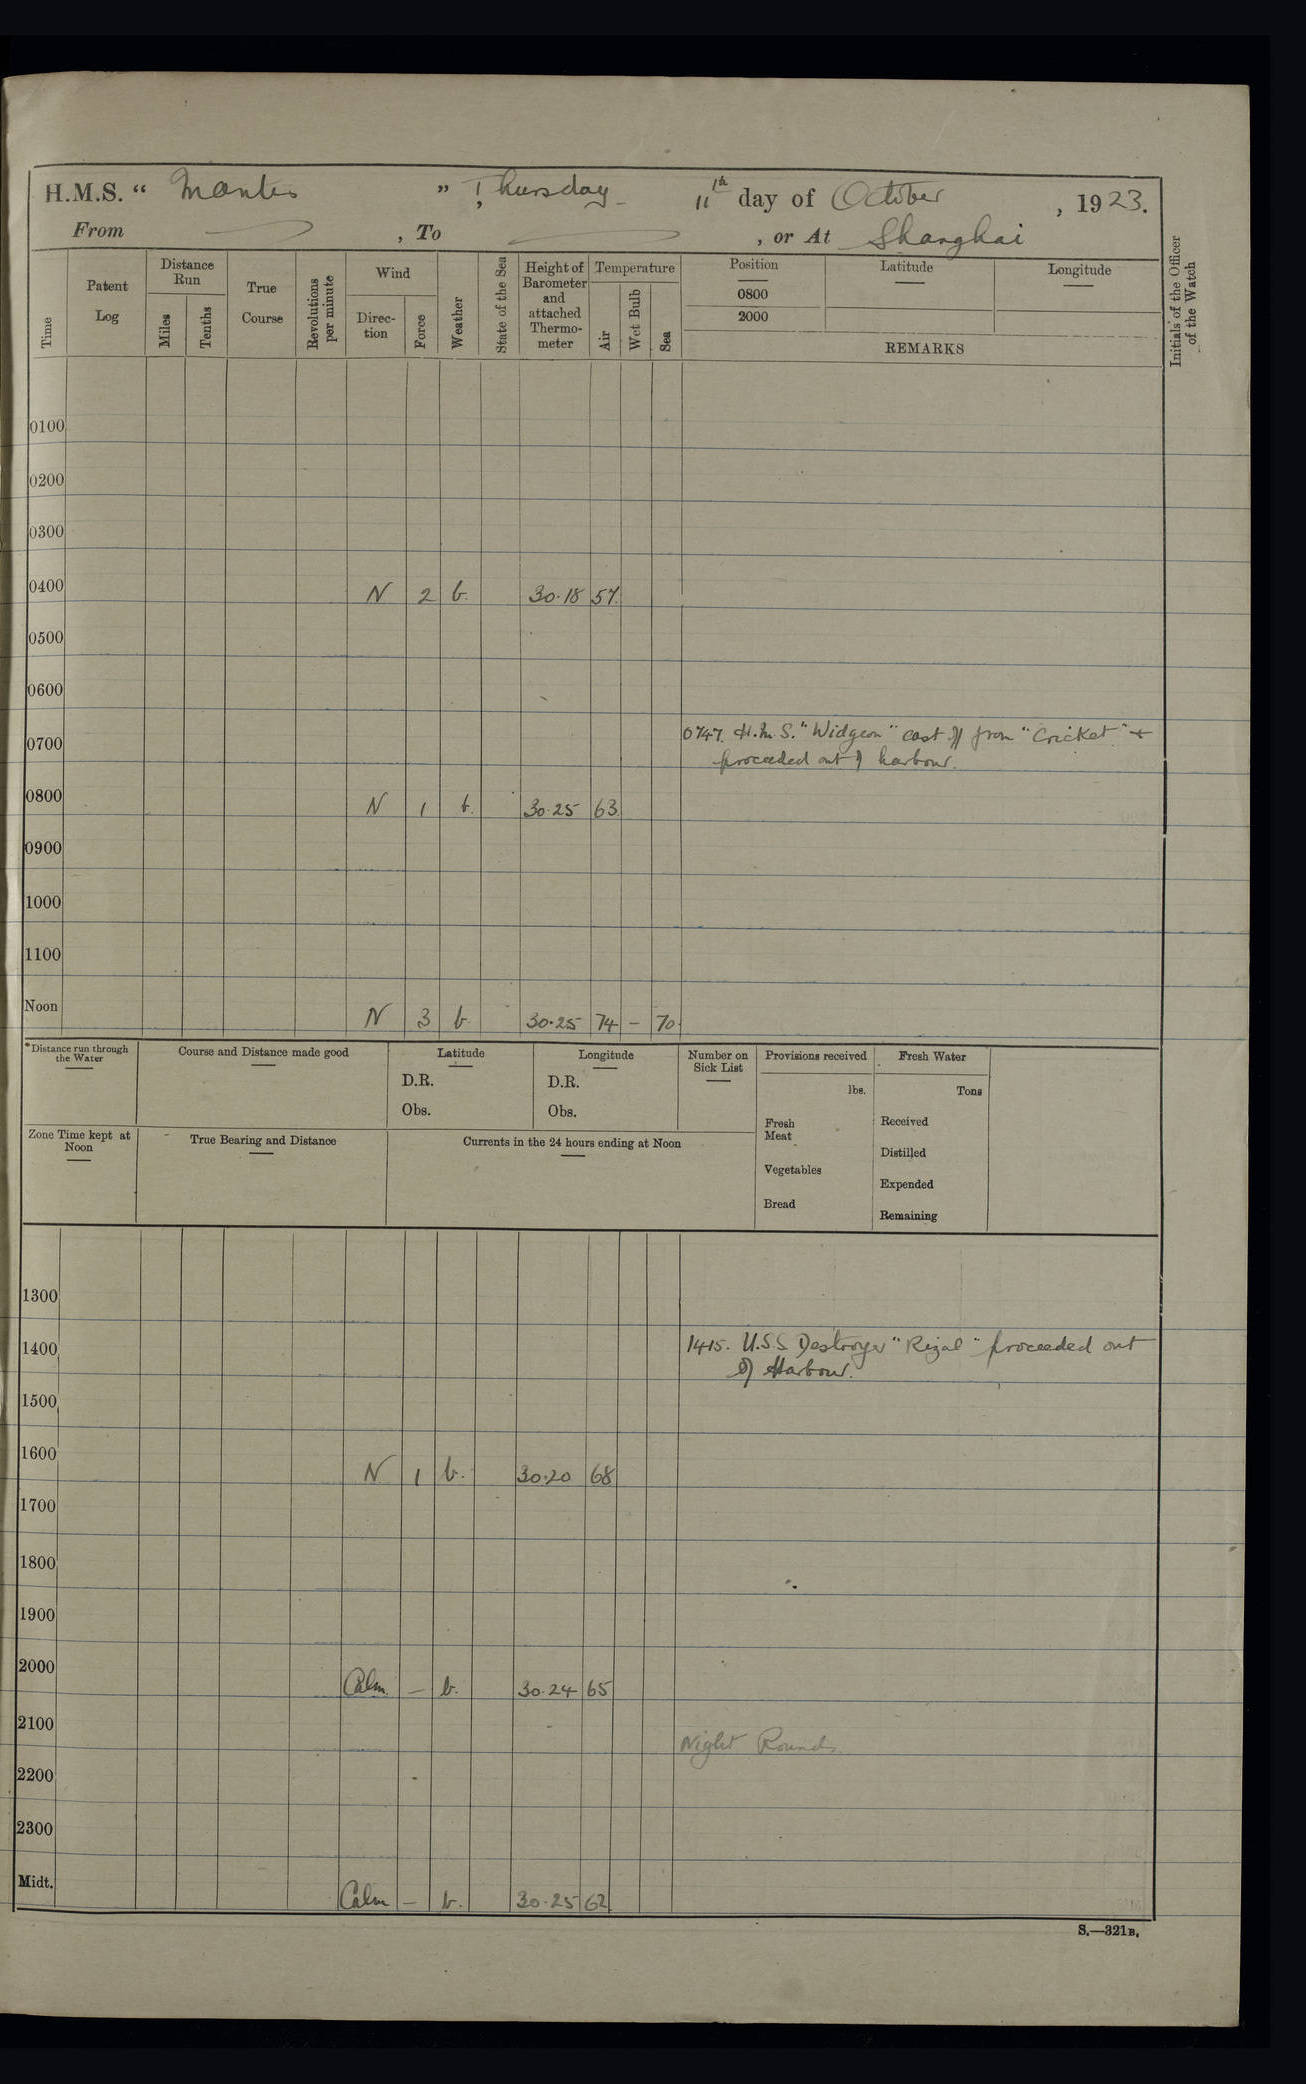 H.M.S. “ Mantis ”, Thursday 11th day of October, 1923.
From , To , or At Shanghai
Time
Patent Log
Distance Run
Miles
Tenths
True Course
Revolutions per minute
Wind
Direc-tion
Force
Weather
State of the Sea
Height of Barometer and attached Thermo-meter
Temperature
Air
Wet Bulb
Sea
Position
Latitude
Longitude
0800
2000
REMARKS
Initials of the Officer of the Watch
0100
0200
0300
0400 N 2 b. 30.18 57.
0500
0600
0700 0747. H.M.S. "Widgeon" cast off from "Cricket" +
proceeded out of harbour.
0800 N 1 b. 30.25 63.
0900
1000
1100
Noon N 3 b 30.25 74 – 70
*Distance run through the Water
Course and Distance made good
Latitude
D.R.
Obs.
Longitude
D.R.
Obs.
Number on Sick List
Provisions received
lbs.
Fresh Meat
Vegetables
Bread
Fresh Water
Tons
Received
Distilled
Expended
Remaining
Zone Time kept at Noon
True Bearing and Distance
Currents in the 24 hours ending at Noon
1300
1400 1415. U.S.S Destroyer "Rizal" proceeded out
of Harbour.
1500
1600 N 1 b. 30.20 68
1700
1800
1900
2000 Calm. — b. 30.24 65
2100 Night Rounds.
2200
2300
Midt. Calm — b. 30.25 62
S.—321B.